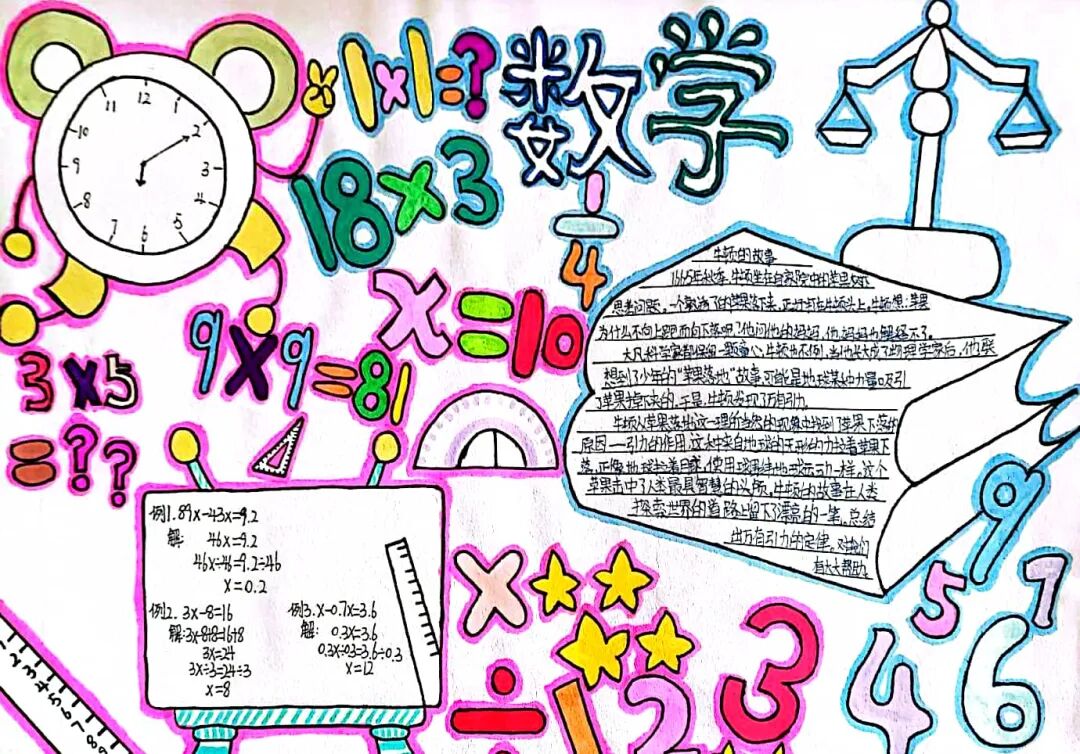 12
1
2
3
4
5
6
7
8
9
10
11
1×1=?
数学
18×3
1÷4
x=10
9×9=81
3×5
=??
牛顿的故事
1665年秋季,牛顿坐在自家院中的苹果树下
思考问题。一个熟透了的苹果落下来,正好打在牛顿头上,牛顿想:苹果
为什么不向上跑而向下落呢?他问他的妈妈,他妈妈也解释不了。
大凡科学家都保留一颗童心,牛顿也不例外,当他长大成了物理学家后,他联
想到了少年的“苹果落地”故事,可能是地球某种力量吸引
了苹果掉下来的,于是,牛顿发现了万有引力。
牛顿从苹果落地这一理所当然的现象中找到了苹果下落的
原因——引力的作用,这种来自地球的无形的力拉着苹果下
落,正像地球拉着月球,使月球围绕地球运动一样,这个
苹果击中了人类最具智慧的头颅,牛顿的故事在人类
探索世界的道路上留下了漂亮的一笔,总结
出万有引力的定律。对我们
有大大帮助。
例1. 89x-43x=9.2
解: 46x=9.2
46x÷46=9.2÷46
x=0.2
例2. 3x-8=16
解:3x-8+8=16+8
3x=24
3x÷3=24÷3
x=8
例3. x-0.7x=3.6
解: 0.3x=3.6
0.3x÷0.3=3.6÷0.3
x=12
1 2 3 4 5 6 7 8 9
×
÷
1 2 3
4 5 6 7 9